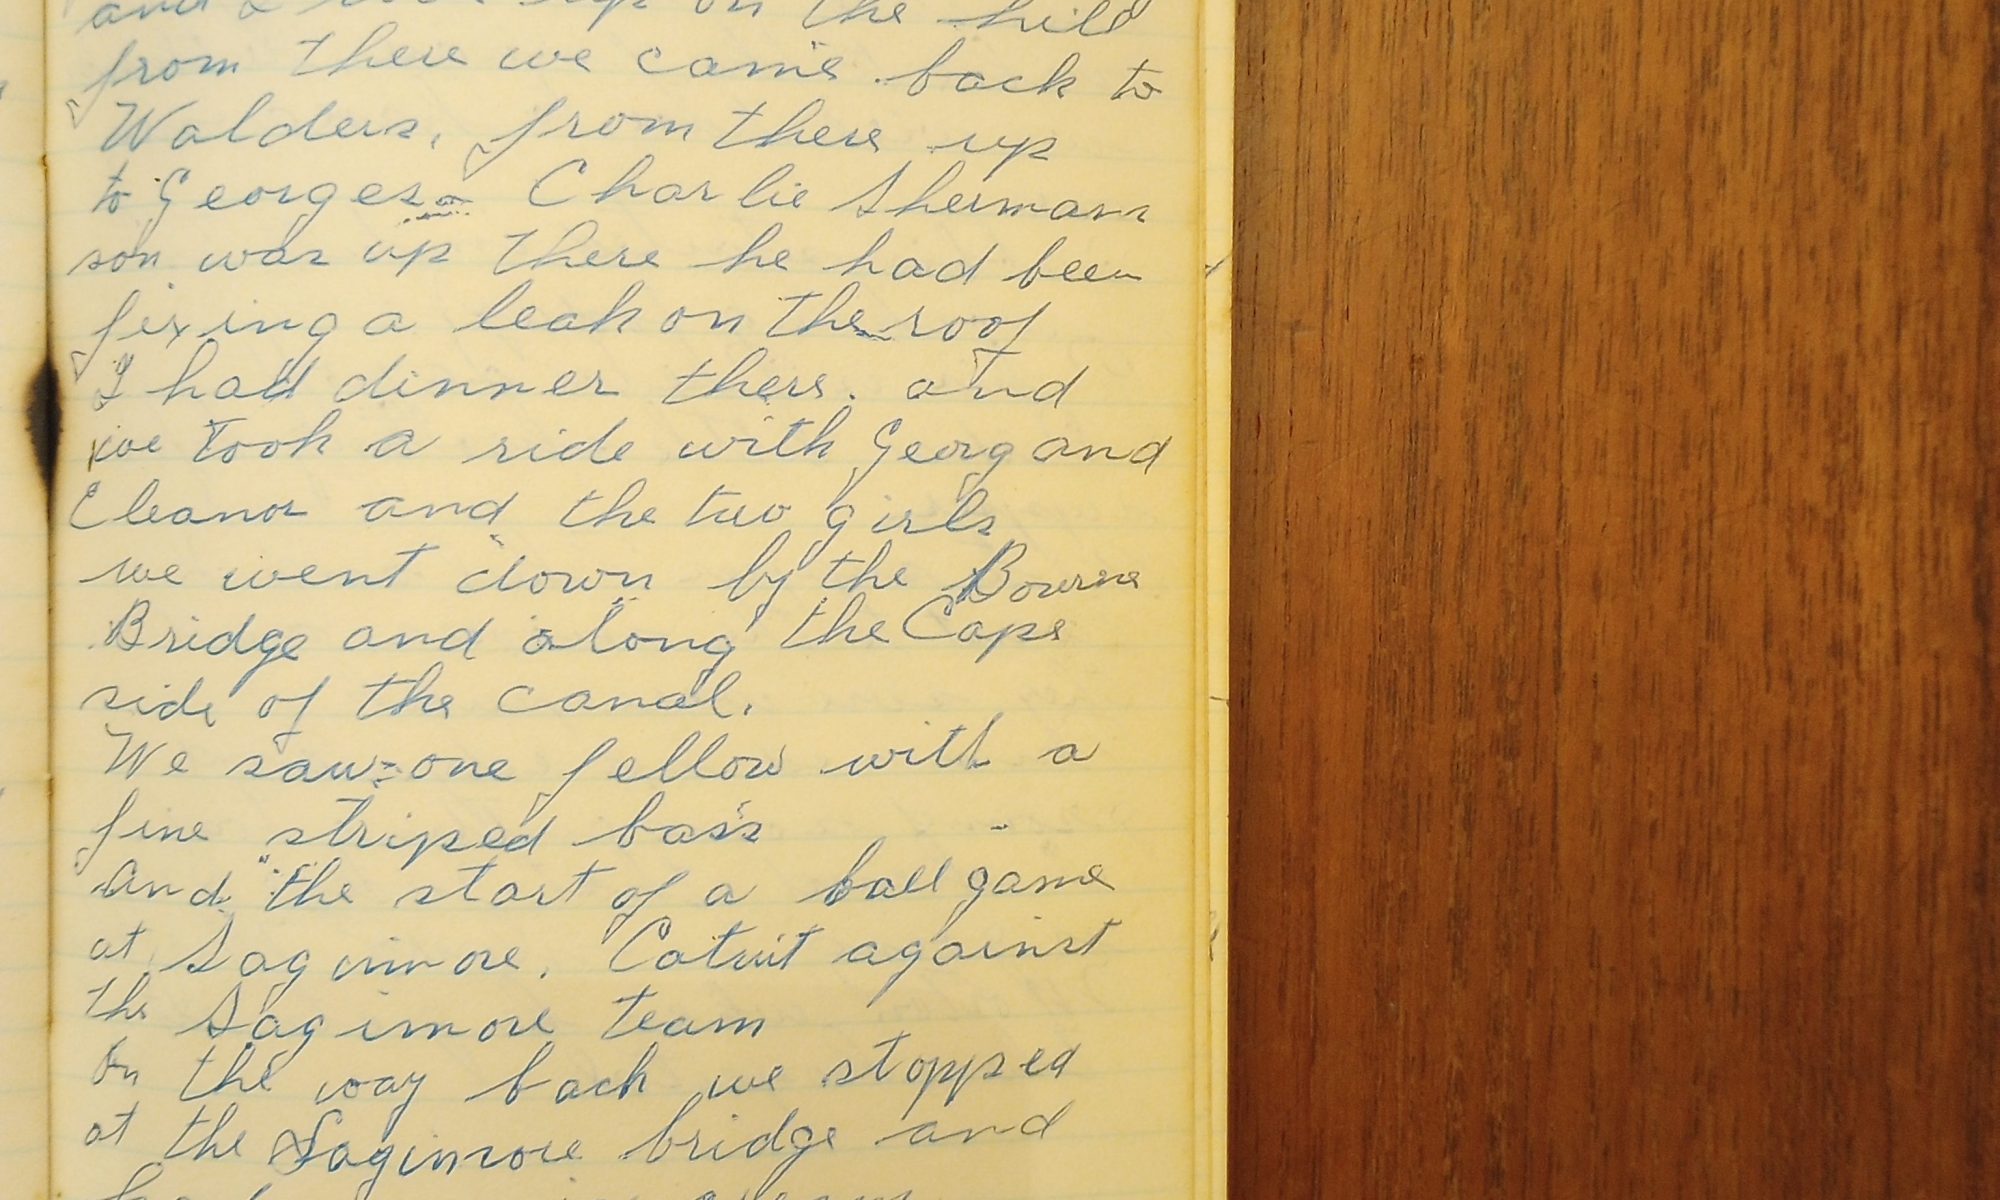 on the hill
from there we came back to
Walders, from there up
to Georges. Charlie Sherman
son was up there he had been
fixing a leak on the roof
I had dinner there. and
we took a ride with Georg and
Eleanor and the two girls
we went down by the Bourne
Bridge and along the Cape
side of the canal.
We saw one fellow with a
fine striped bass
and the start of a ball game
at Sagimore. Cotuit against
the Sagimore team
On the way back we stopped
at the Sagimore bridge and